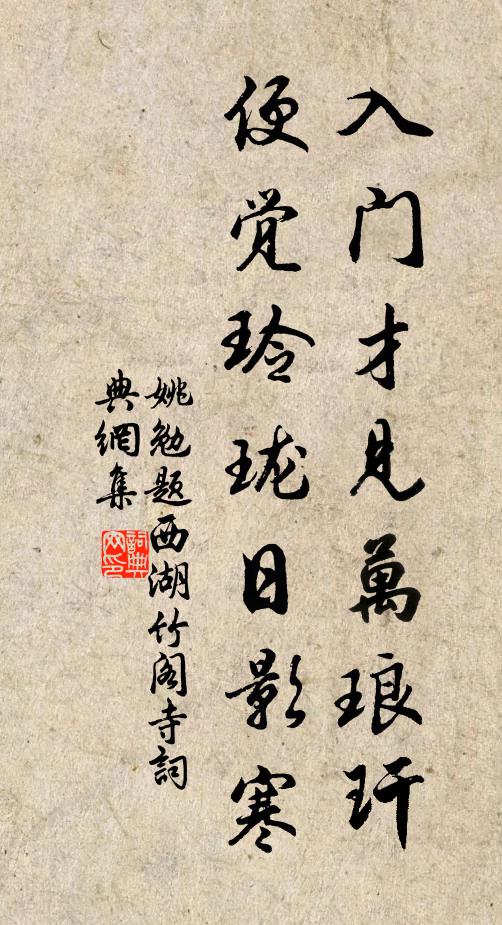 入门才见萬琅玕
便觉玲珑日影寒
姚勉题西湖竹阁寺詞
典網集
詞典
网印